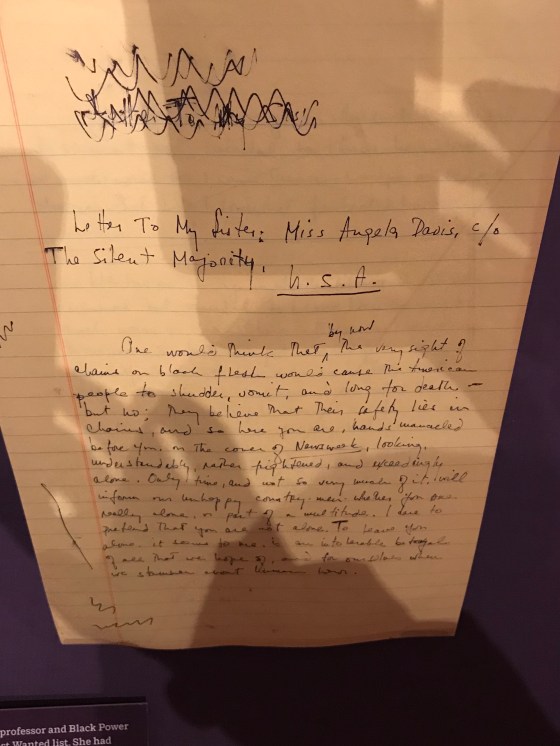 Letter To My Sister: Miss Angela Davis, c/o
The Silent Majority,
U.S.A.
by now
One would think that, the very sight of
chains on black flesh would cause the American
people to shudder, vomit, and long for death —
but no: They believe that Their safety lies in
chains, and so here you are, hands manacled
before you, on the cover of Newsweek, looking,
understandably, rather frightened, and exceedingly
alone. Only time, and not so very much of it, will
inform our unhappy countrymen whether you are
really alone, or part of a multitude. I
pretend that you are not alone. To leave you
alone, it seems to me, is an intolerable betrayal
of all that we hope
we stammer about human
professor and Black Power
st Wanted list. She had